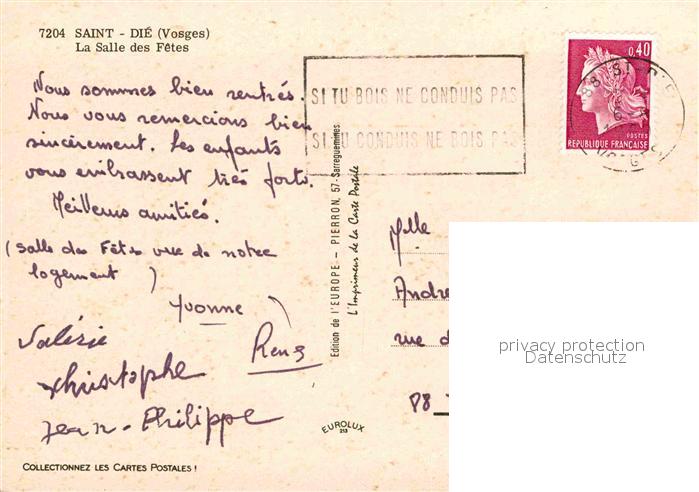 7204 SAINT - DIÉ (Vosges)
La Salle des Fêtes
Nous sommes bien rentrés.
Nous vous remercions bien
sincèrement. Les enfants
vous embrassent très forts.
Meilleures amitiés.
(Salle des Fêtes vue de notre
logement )
Yvonne
Valérie
René
Christophe
Jean-Philippe
COLLECTIONNEZ LES CARTES POSTALES !
SI TU BOIS NE CONDUIS PAS
SI TU CONDUIS NE BOIS PAS
Edition de l'EUROPE - PIERRON, 57-Sarreguemines
L'Imprimeur de la Carte Postale
EUROLUX
213
0,40
POSTES
REPUBLIQUE FRANÇAISE
88 ST-DIE
VOSGES
Mlle
André
rue d
88
privacy protection
Datenschutz